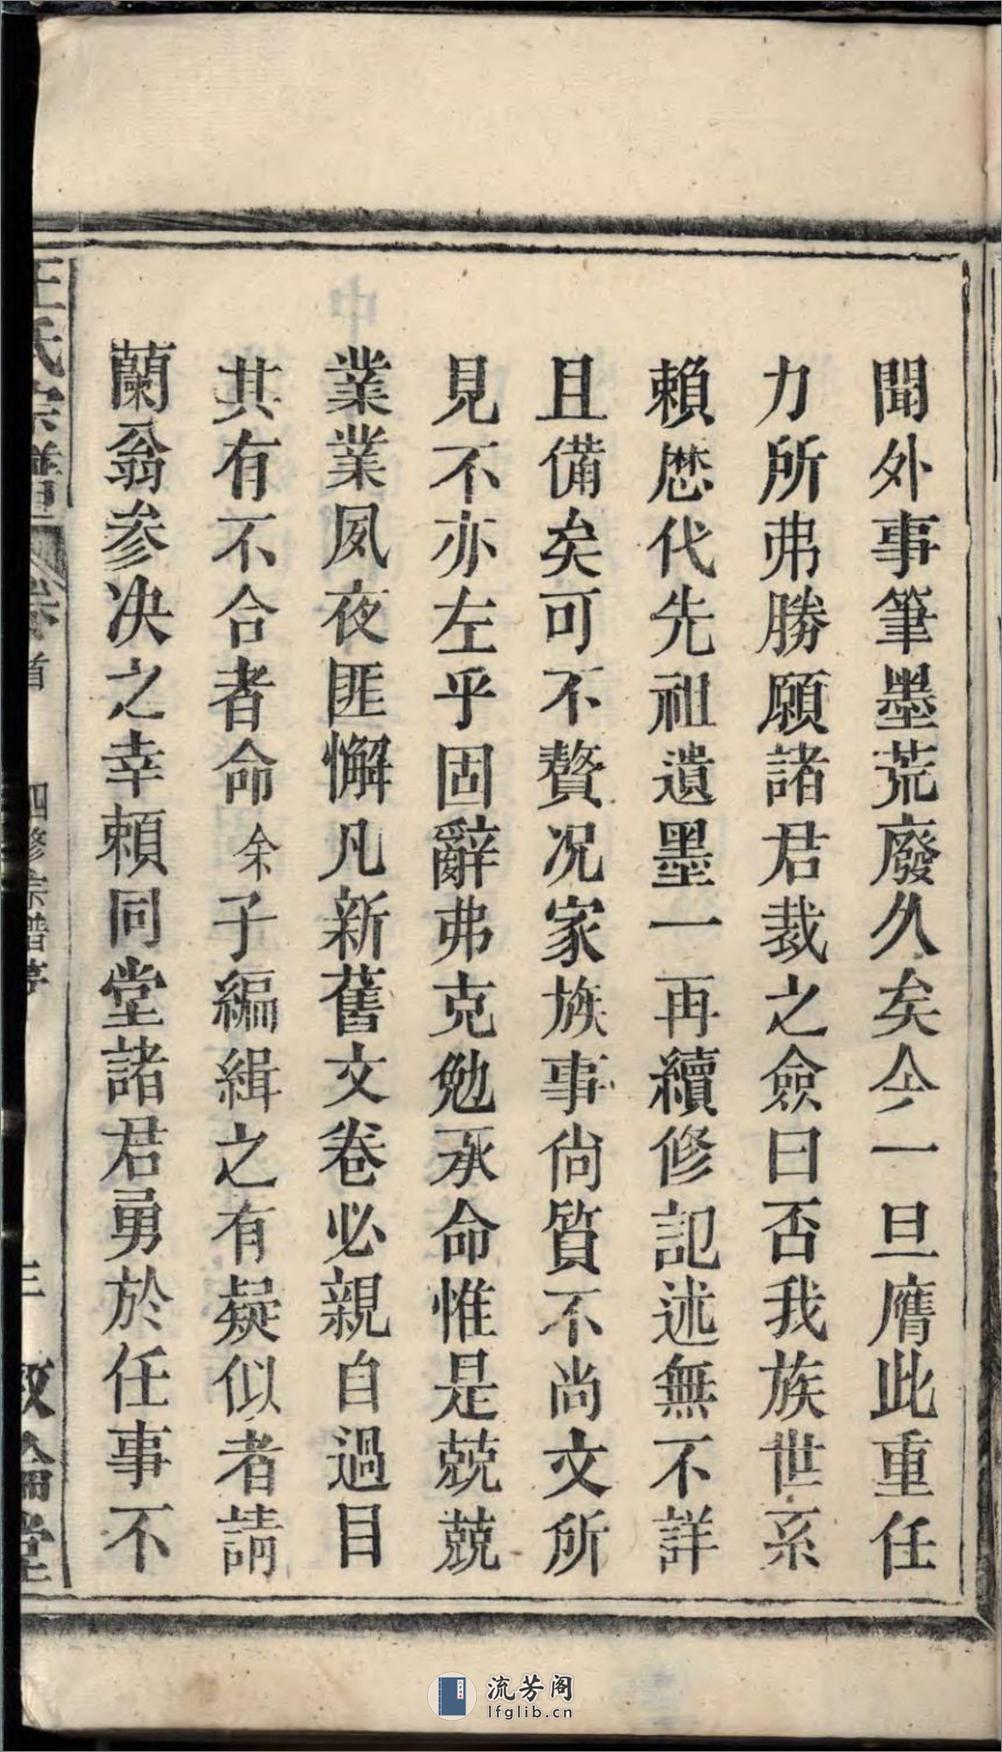 聞外事筆墨荒廢久矣今一旦膺此重任
力所弗勝願諸君裁之僉曰否我族世系
賴歴代先祖遺墨一再續修記述無不詳
且備矣可不贅况家族事尙質不尚文所
見不亦左乎固辭弗克勉承命惟是兢兢
業業夙夜匪懈凡新舊文卷必親自過目
其有不合者命余子編緝之有疑似者請
蘭翁參决之幸賴同堂諸君勇於任事不
王氏宗譜 卷首 四修宗譜序 三 敦倫堂
流芳阁
lfglib.cn